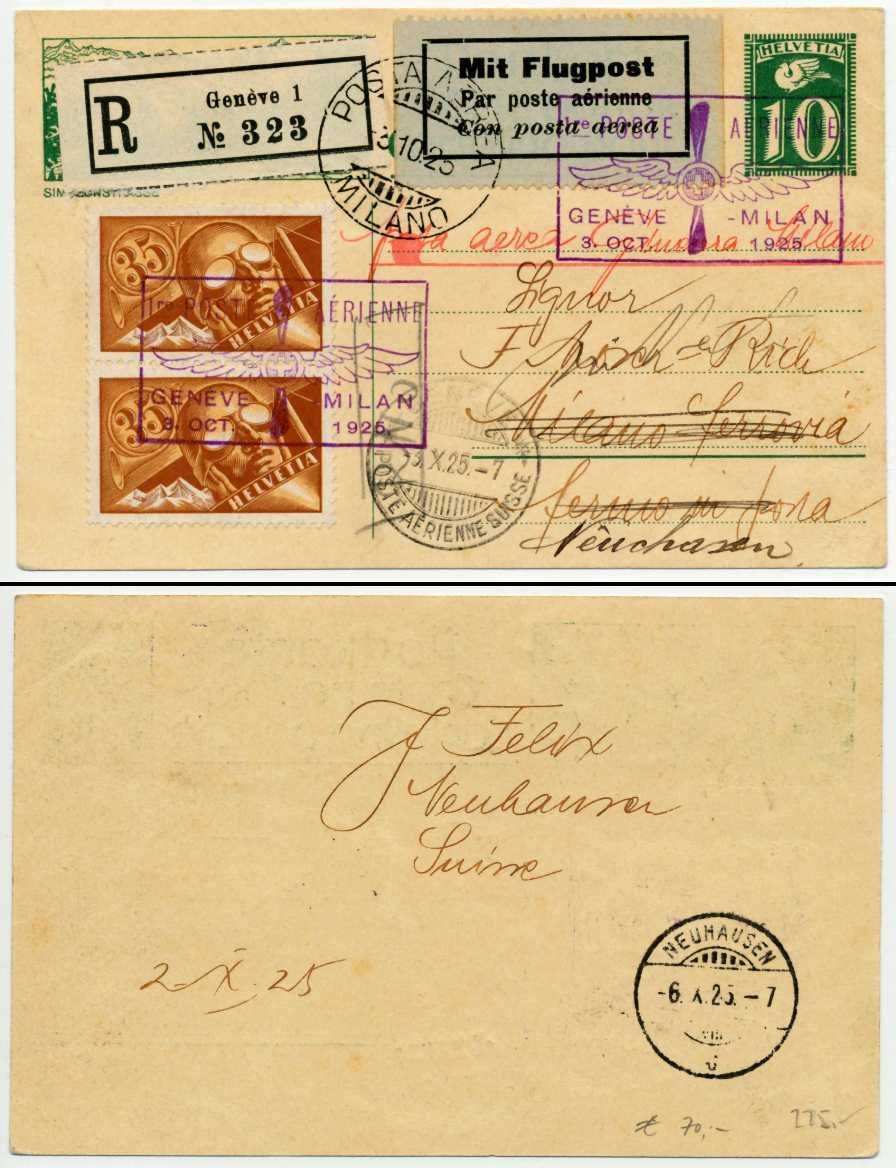 R
Genève 1
№ 323
SIMPLONSTRASSE
POSTA AEREA
-3.10.25
MILANO
Mit Flugpost
Par poste aérienne
Con posta aerea
HELVETIA
10
1re POSTE AÉRIENNE
GENÈVE - MILAN
3. OCT. 1925
Posta aerea Milano
35
HELVETIA
35
HELVETIA
1re POSTE AÉRIENNE
GENÈVE - MILAN
3. OCT. 1925
3.X.25.-7
POSTE AÉRIENNE SUISSE
Signor
F
Milano Ferrovia
Fermo in posta
Neuhausen
J Felix
Neuhausen
Suisse
2.X.25
NEUHAUSEN
-6.X.25.-7
VIII
70,-
225.-